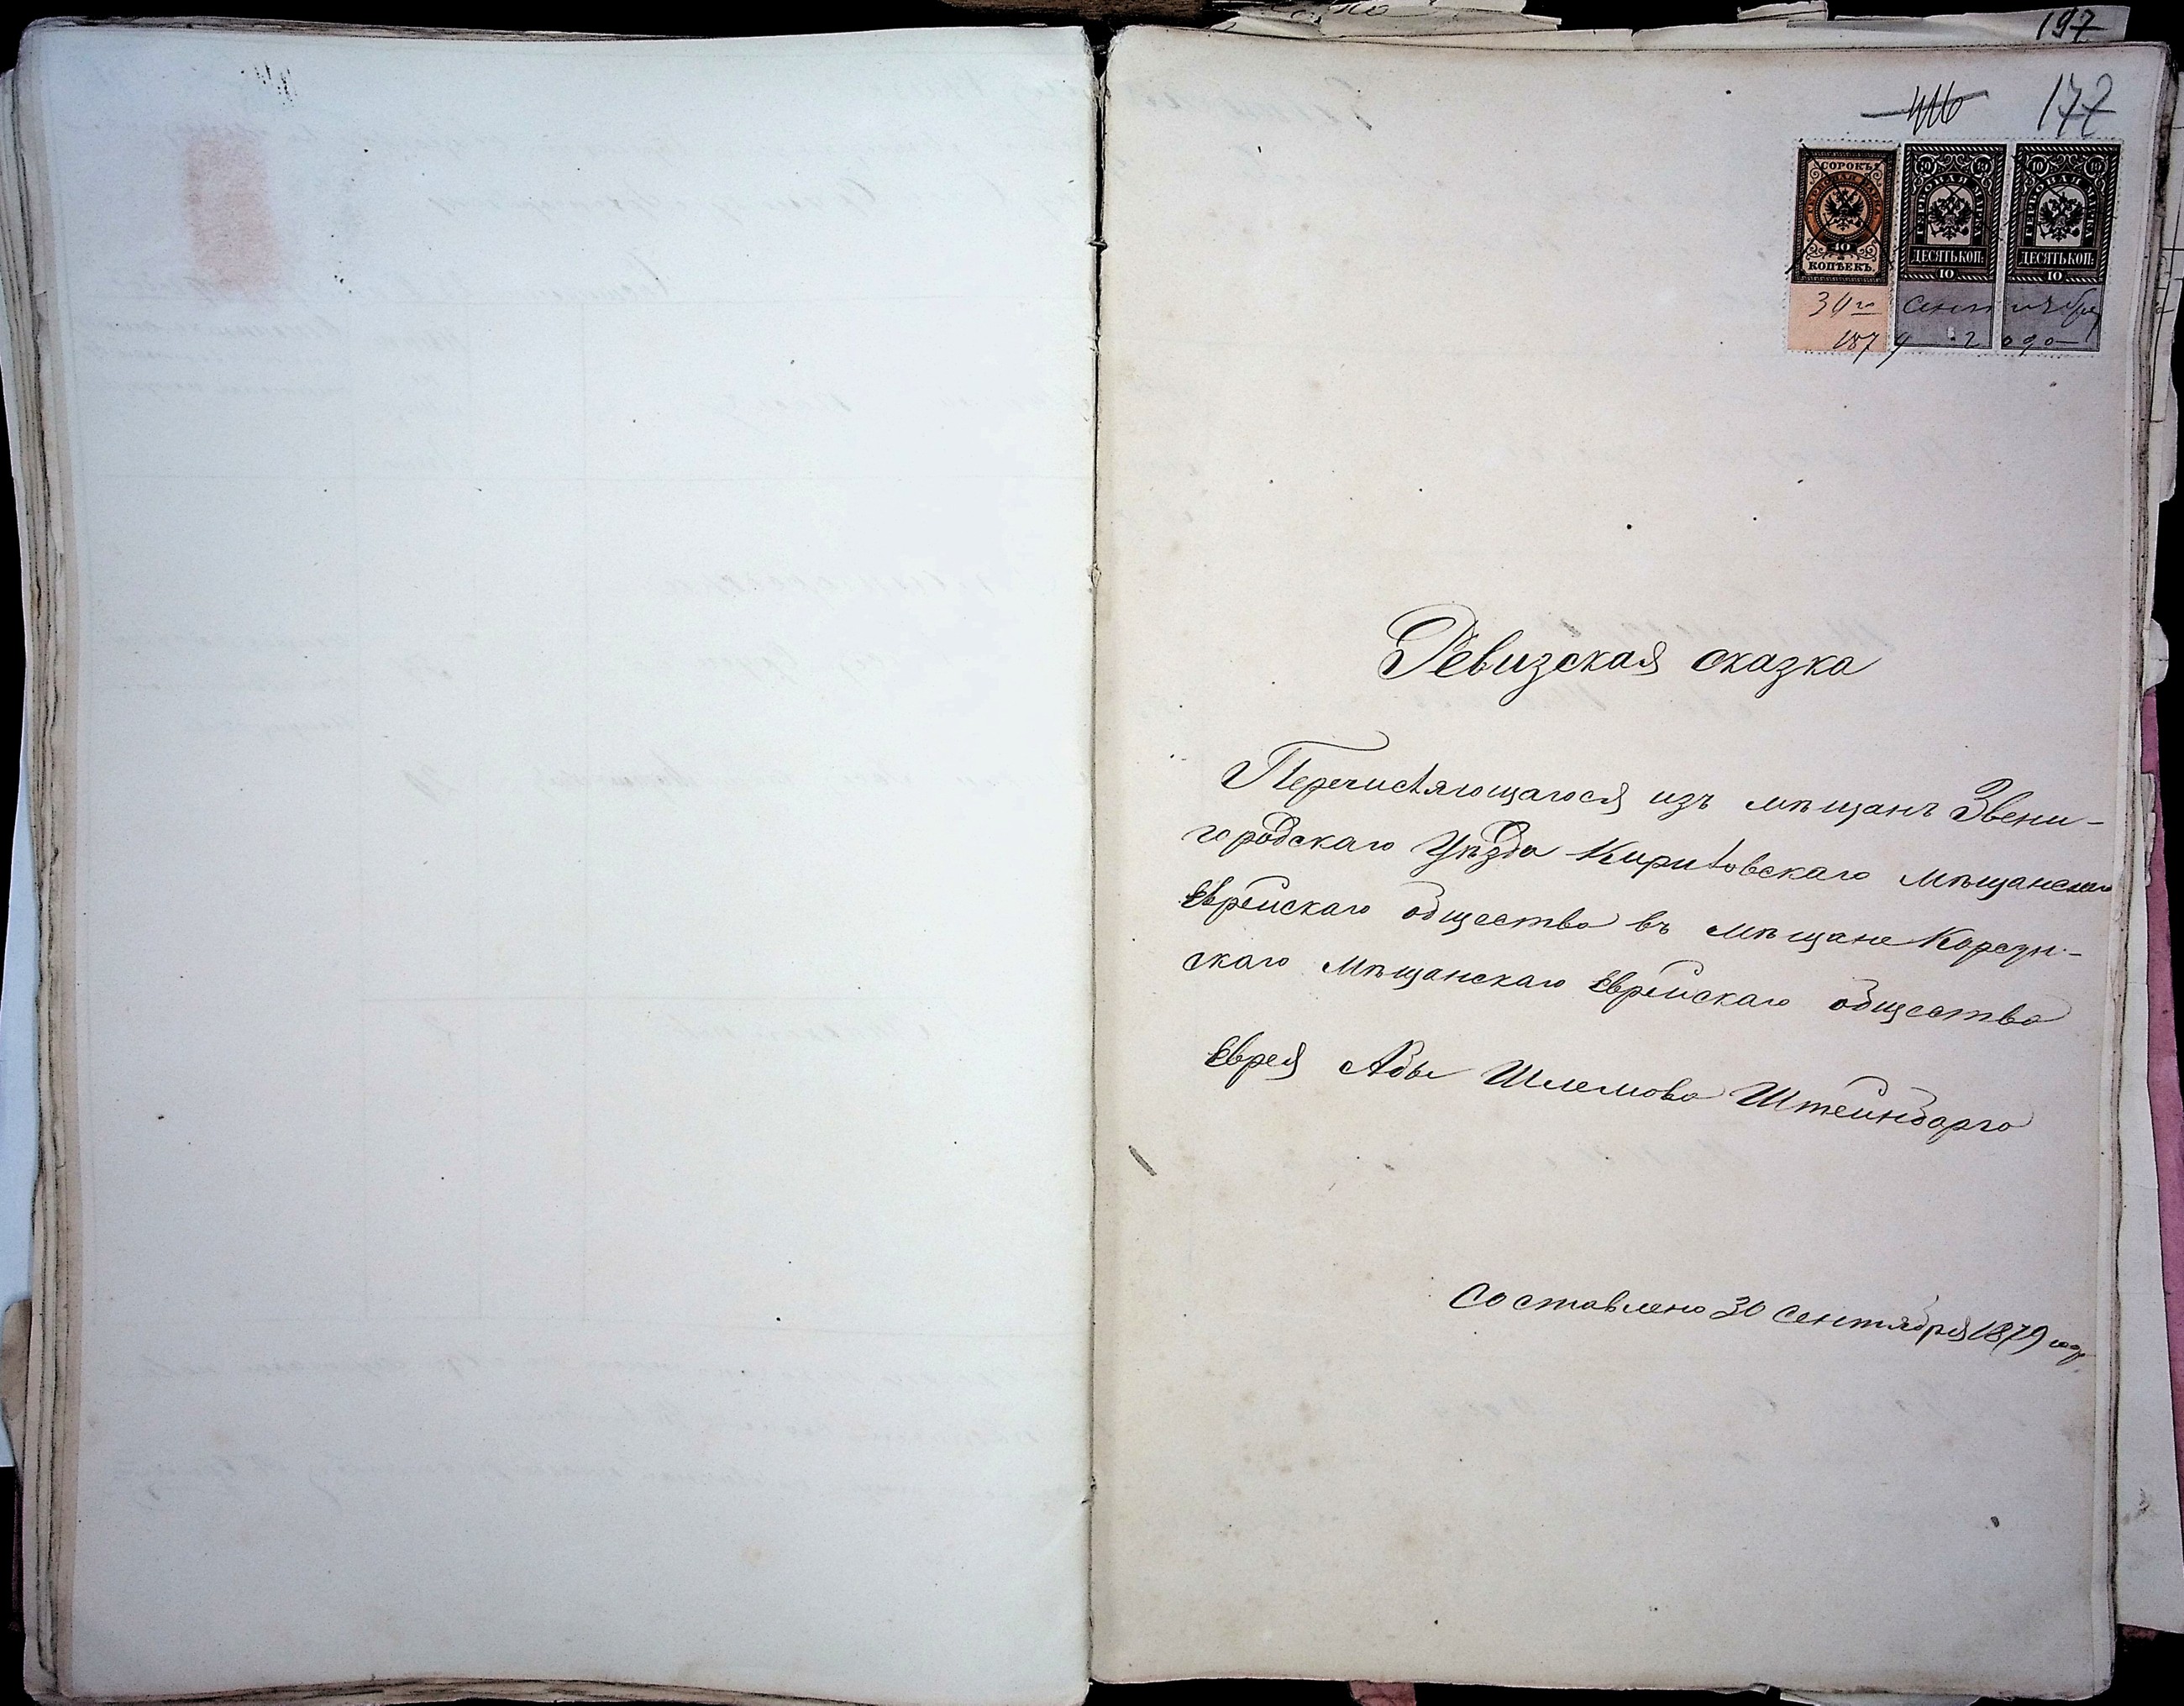 197
446 177
СОРОКЪ
ГЕРБОВАЯ МАРКА
40
КОПѢЕКЪ.
10 10
ГЕРБОВАЯ МАРКА
ДЕСЯТЬ КОП:
10
10 10
ГЕРБОВАЯ МАРКА
ДЕСЯТЬ КОП:
10
30го Сентября
1879 года
Ревизская сказка
Перечисляющагося изъ мѣщанъ Звени-
городскаго Уѣзда Кириловскаго Мѣщанскаго
Еврейскаго общества въ мѣщане Корсун-
скаго Мѣщанскаго Еврейскаго общества
Еврея Абы Шлемова Штейнбарга
Составлено 30 Сентября 1879 года